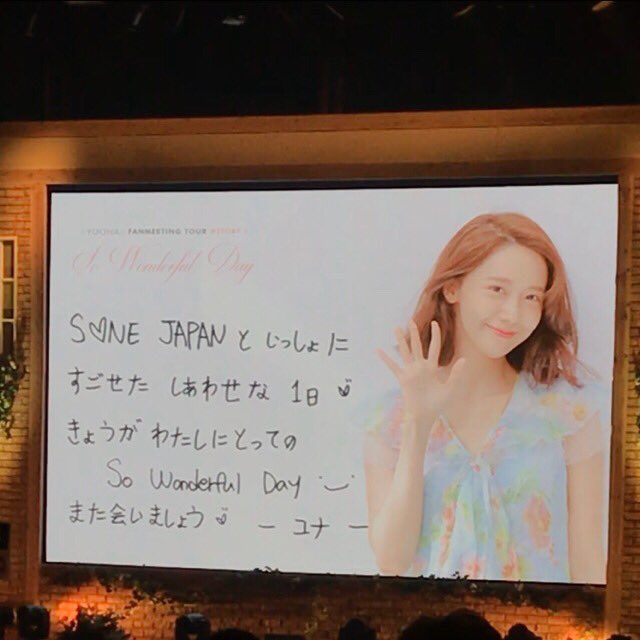 YOONA FANMEETING TOUR #STORY_1
So Wonderful Day
S♡NE JAPAN と いっしょに
すごせた しあわせな 1日
きょうが わたしにとっての
So Wonderful Day
また会いましょう
ー ユナ ー